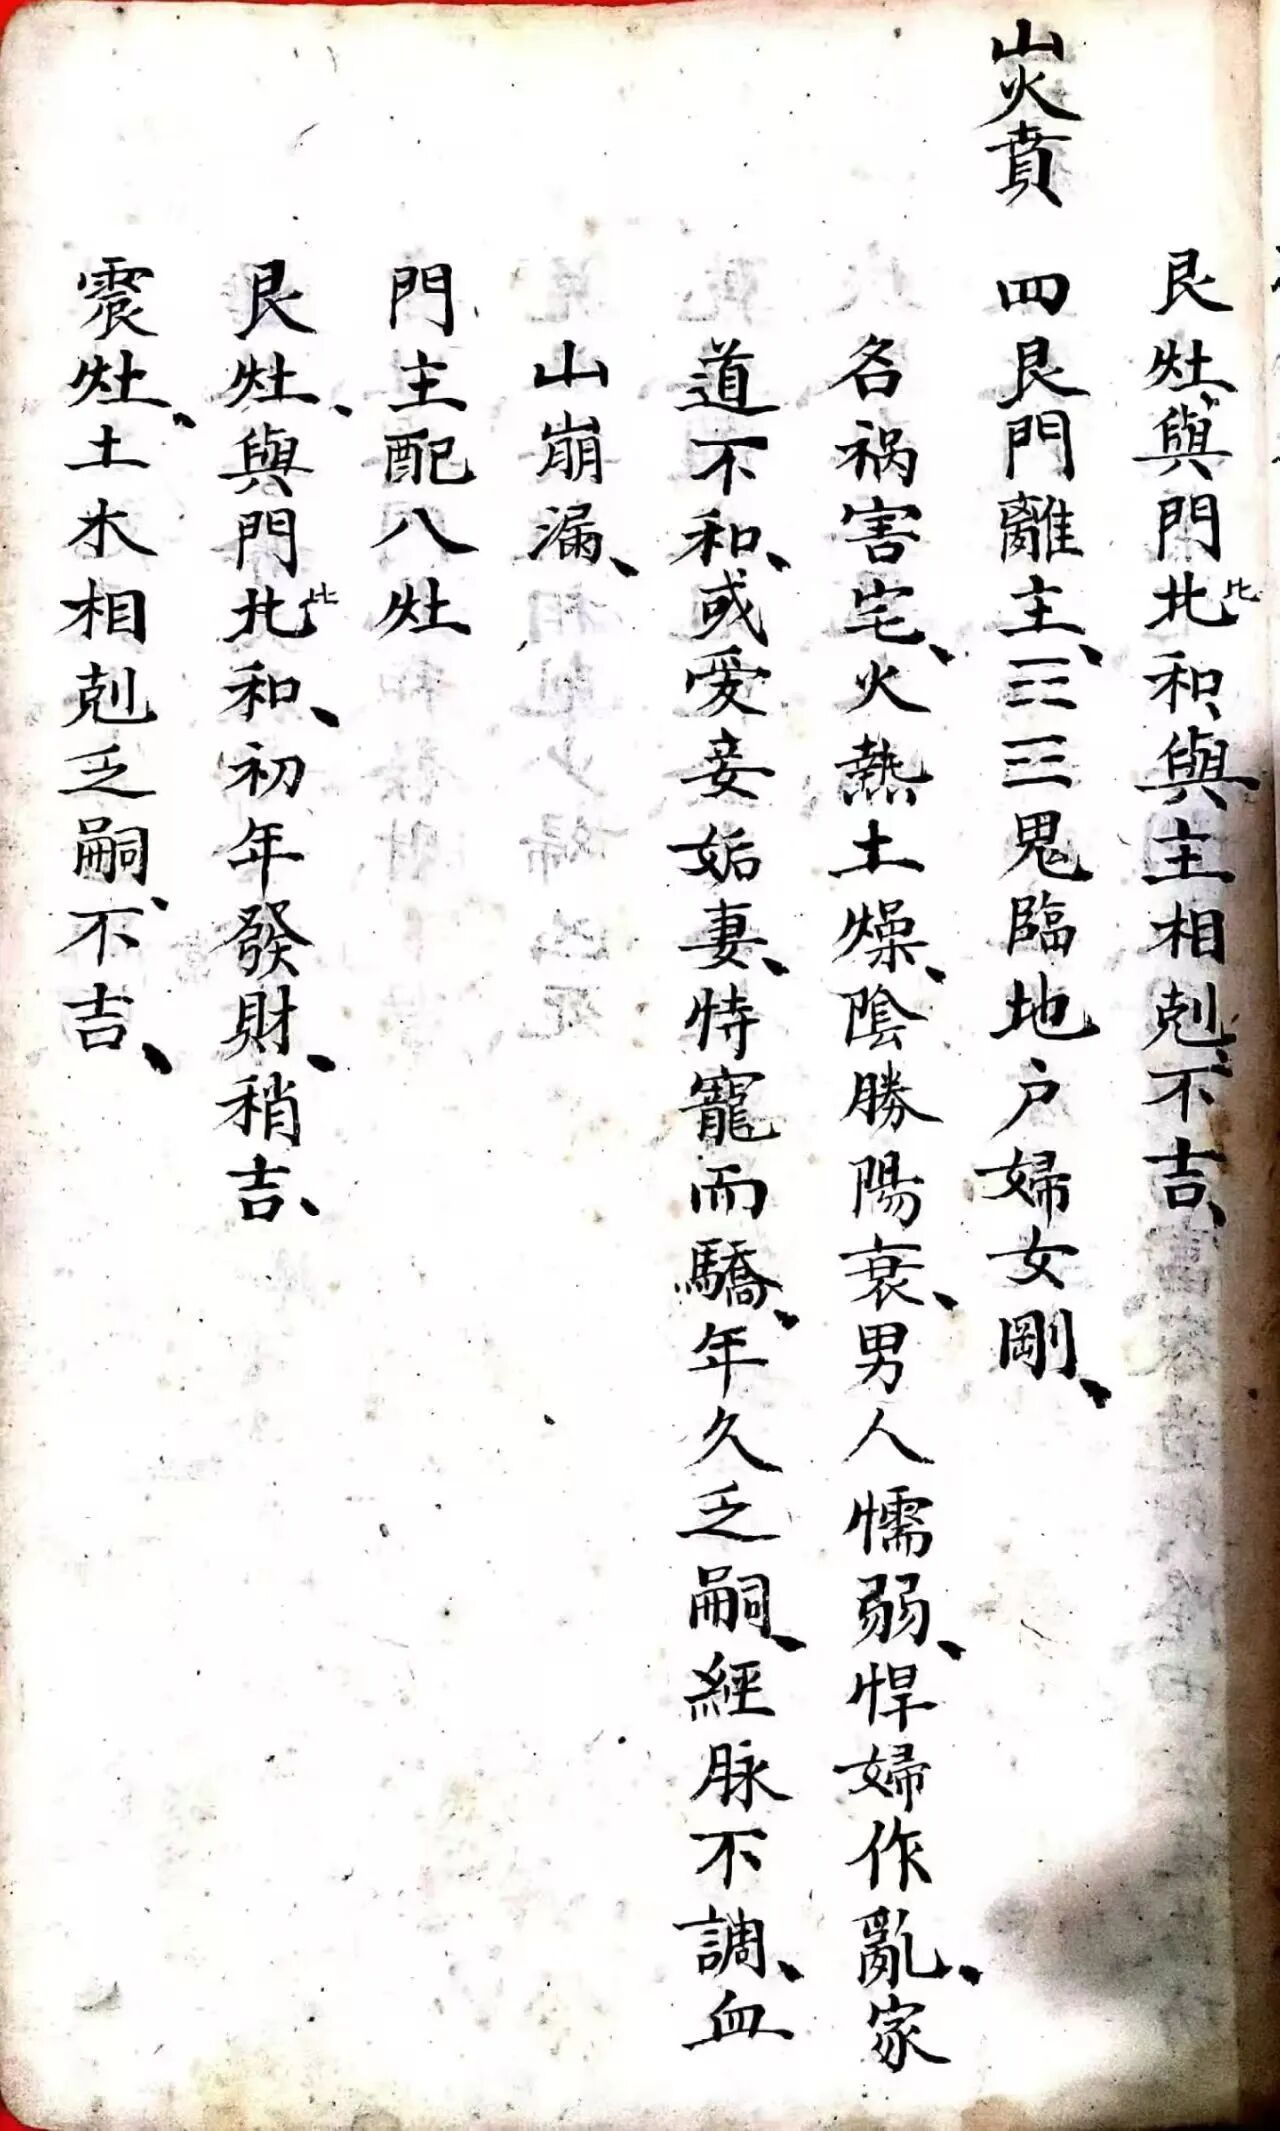 艮灶、與門北比和、與主相剋、不吉、
山火賁
四艮門離主、☶☲鬼臨地户婦女剛、
各祸害宅、火熱土燥、陰勝陽衰、男人懦弱、悍婦作亂、家
道不和、或愛妾妬妻、恃寵而驕、年久乏嗣、經脉不調、血
山崩漏、
門主配八灶
艮灶、與門北比和、初年發財、稍吉、
震灶、土木相剋乏嗣、不吉、